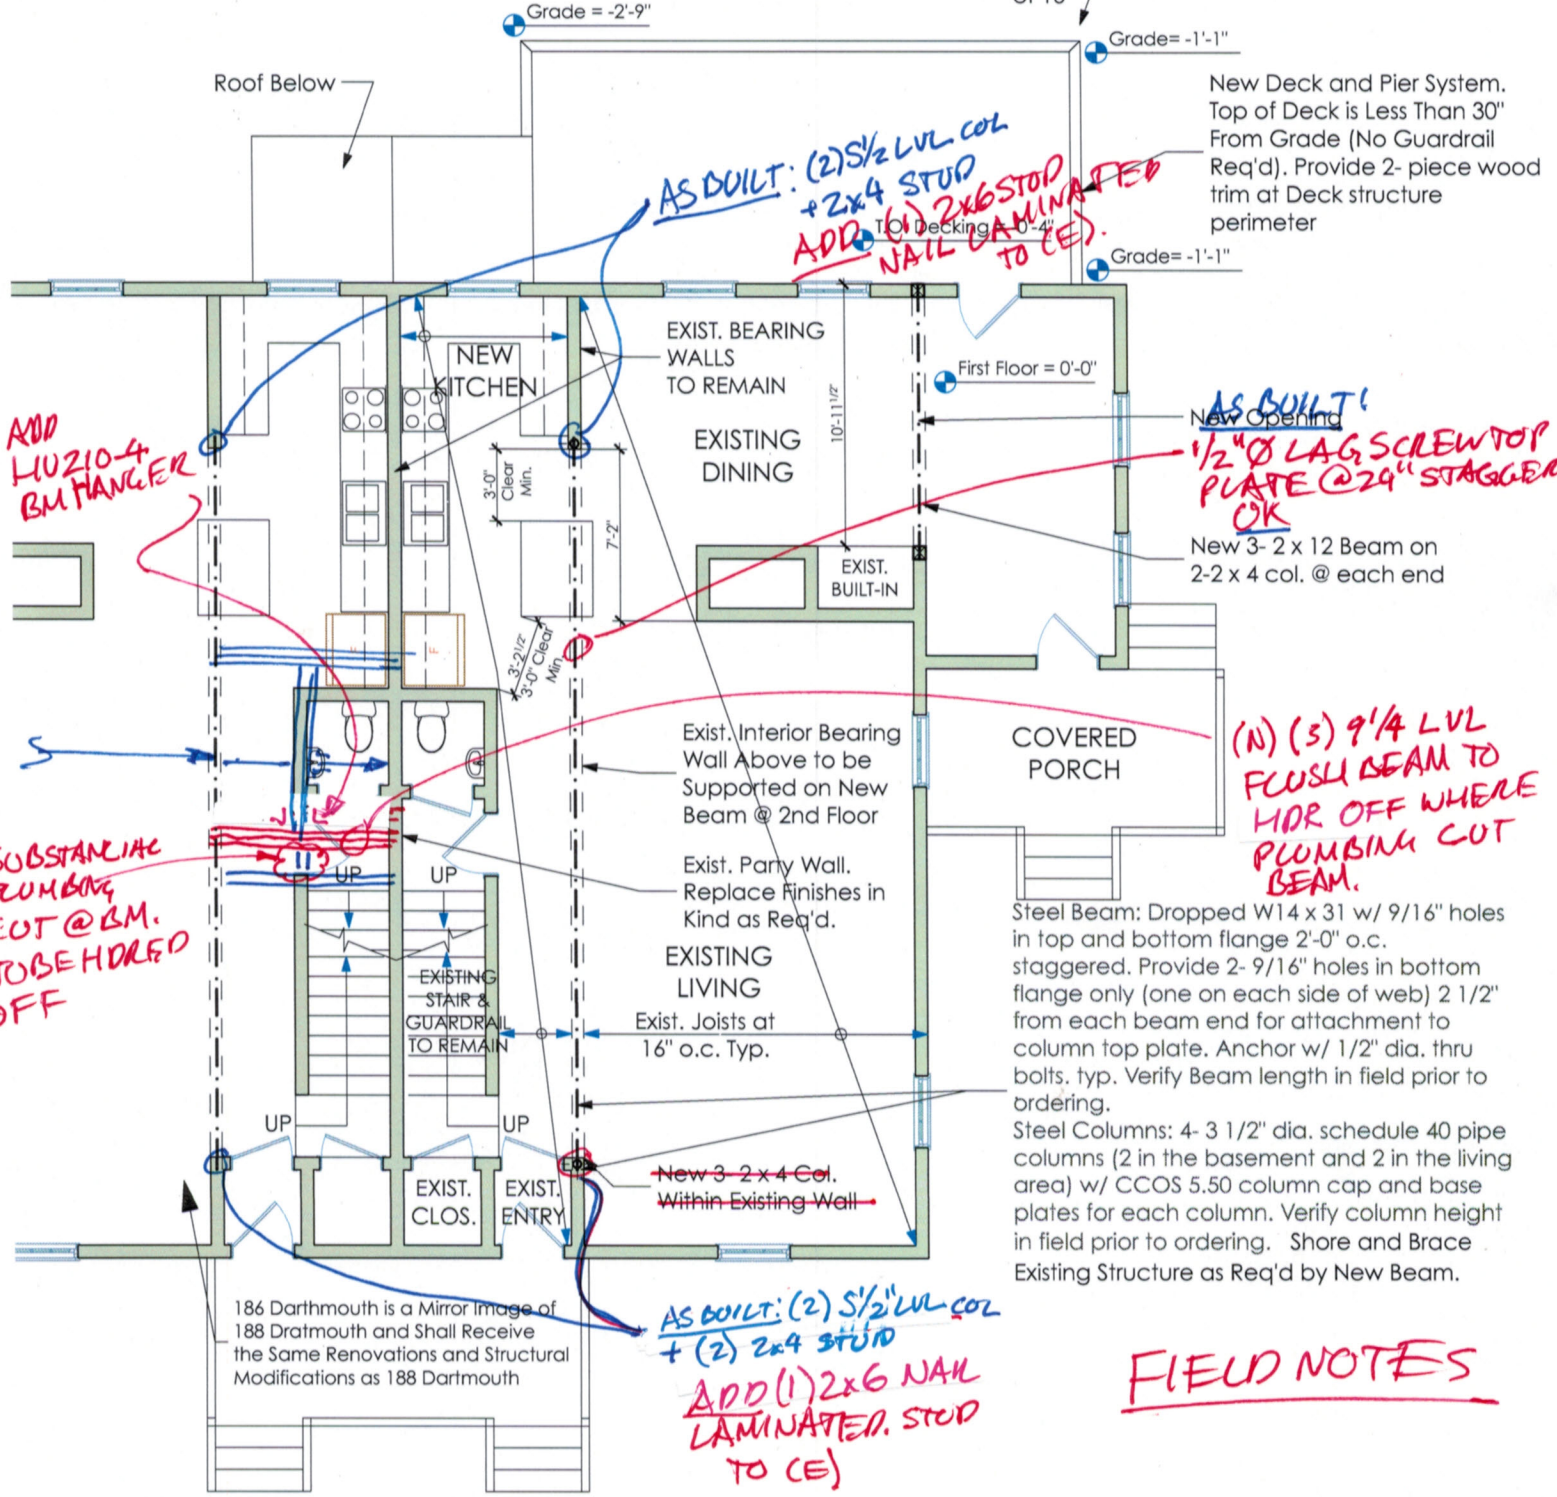 Grade = -2'-9"
Grade= -1'-1"
Roof Below
New Deck and Pier System.
Top of Deck is Less Than 30"
From Grade (No Guardrail
Req'd). Provide 2- piece wood
trim at Deck structure
perimeter
AS BUILT: (2) 5 1/2 LVL COL
+ 2x4 STUD
ADD (1) 2x6 STUD
NAIL LAMINATED
TO (E).
T.O. Decking = 0'-4"
Grade= -1'-1"
NEW
KITCHEN
EXIST. BEARING
WALLS
TO REMAIN
10'-11 1/2"
First Floor = 0'-0"
EXISTING
DINING
3'-0"
Clear
Min.
7'-2"
AS BUILT:
New Opening
1/2" Ø LAG SCREW TOP
PLATE @ 24" STAGGER
OK
New 3- 2 x 12 Beam on
2-2 x 4 col. @ each end
ADD
HU210-4
BM HANGER
EXIST.
BUILT-IN
F
F
3'-2 1/2"
3'-0" Clear
Min.
Exist. Interior Bearing
Wall Above to be
Supported on New
Beam @ 2nd Floor
COVERED
PORCH
(N) (3) 9 1/4 LVL
FLUSH BEAM TO
HDR OFF WHERE
PLUMBING CUT
BEAM.
SUBSTANCIAL
PLUMBING
CUT @ BM.
TO BE HDRED
OFF
UP
UP
Exist. Party Wall.
Replace Finishes in
Kind as Req'd.
EXISTING
STAIR &
GUARDRAIL
TO REMAIN
EXISTING
LIVING
Exist. Joists at
16" o.c. Typ.
Steel Beam: Dropped W14 x 31 w/ 9/16" holes
in top and bottom flange 2'-0" o.c.
staggered. Provide 2- 9/16" holes in bottom
flange only (one on each side of web) 2 1/2"
from each beam end for attachment to
column top plate. Anchor w/ 1/2" dia. thru
bolts. typ. Verify Beam length in field prior to
ordering.
Steel Columns: 4- 3 1/2" dia. schedule 40 pipe
columns (2 in the basement and 2 in the living
area) w/ CCOS 5.50 column cap and base
plates for each column. Verify column height
in field prior to ordering. Shore and Brace
Existing Structure as Req'd by New Beam.
UP
UP
EXIST.
CLOS.
EXIST.
ENTRY
New 3- 2 x 4 Col.
Within Existing Wall
186 Darthmouth is a Mirror Image of
188 Dratmouth and Shall Receive
the Same Renovations and Structural
Modifications as 188 Dartmouth
AS BUILT: (2) 5 1/2" LVL COL
+ (2) 2x4 STUD
ADD (1) 2x6 NAIL
LAMINATED. STUD
TO (E)
FIELD NOTES